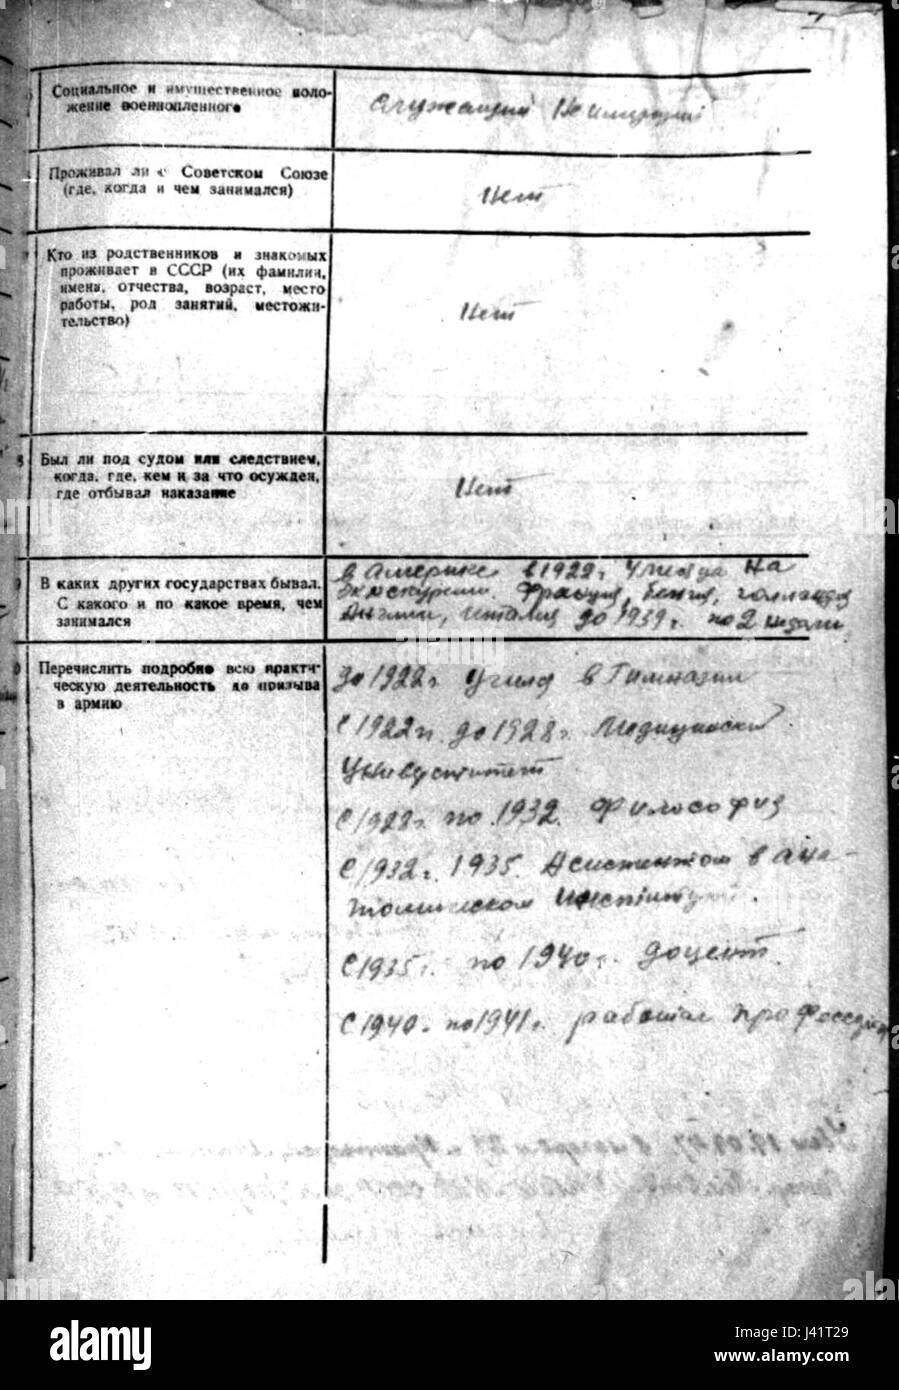 Социальное и имущественное поло-
жение военнопленного
Служащий
Проживал ли в Советском Союзе
(где, когда и чем занимался)
Нет
Кто из родственников и знакомых
проживает в СССР (их фамилия,
имена, отчества, возраст, место
работы, род занятий, местожи-
тельство)
Нет
Был ли под судом или следствием,
когда, где, кем и за что осужден,
где отбывал наказание
Нет
В каких других государствах бывал.
С какого и по какое время, чем
занимался
в Америке в 1922г. на
Экскурсии. Франция,
Англии, Италия до 1939г. по 2 недели
Перечислить подробно всю практи-
ческую деятельность до призыва
в армию
До 1922г. учился в Гимназии
С 1922г. до 1928г. Медицинский
Университет
С 1928г. по 1932. Философия
С 1932г. 1935. Асистентом в ана-
томическом Институте.
С 1935г. по 1940г. доцент.
С 1940г. по 1941г. работал профессором
alamy stock photo
J41T29
www.alamy.com